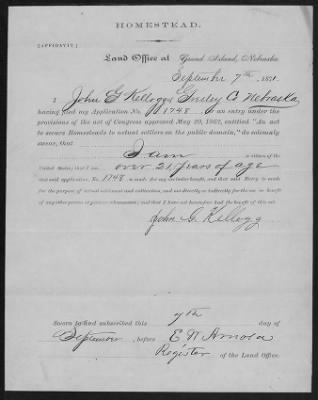 HOMESTEAD.
[AFFIDAVIT.]
Land Office at Grand Island, Nebraska
September 7th 1871.
I John G Kellogg of Co Nebraska
having filed my Application No. 1748 for an entry under the
provisions of the act of Congress approved May 20, 1862, entitled "An act
to secure Homesteads to actual settlers on the public domain," do solemnly
swear, that I am a citizen of the
United States; that I am over 21 years of age
that said application, No. 1748 is made for my exclusive benefit; and that said Entry is made
for the purpose of actual settlement and cultivation, and not directly or indirectly for the use or benefit
of any other person or persons whomsoever; and that I have not heretofore had the benefit of this act.
John G. Kellogg
Sworn to and subscribed this 7th day of
September, before E W Arnold
Register of the Land Office.